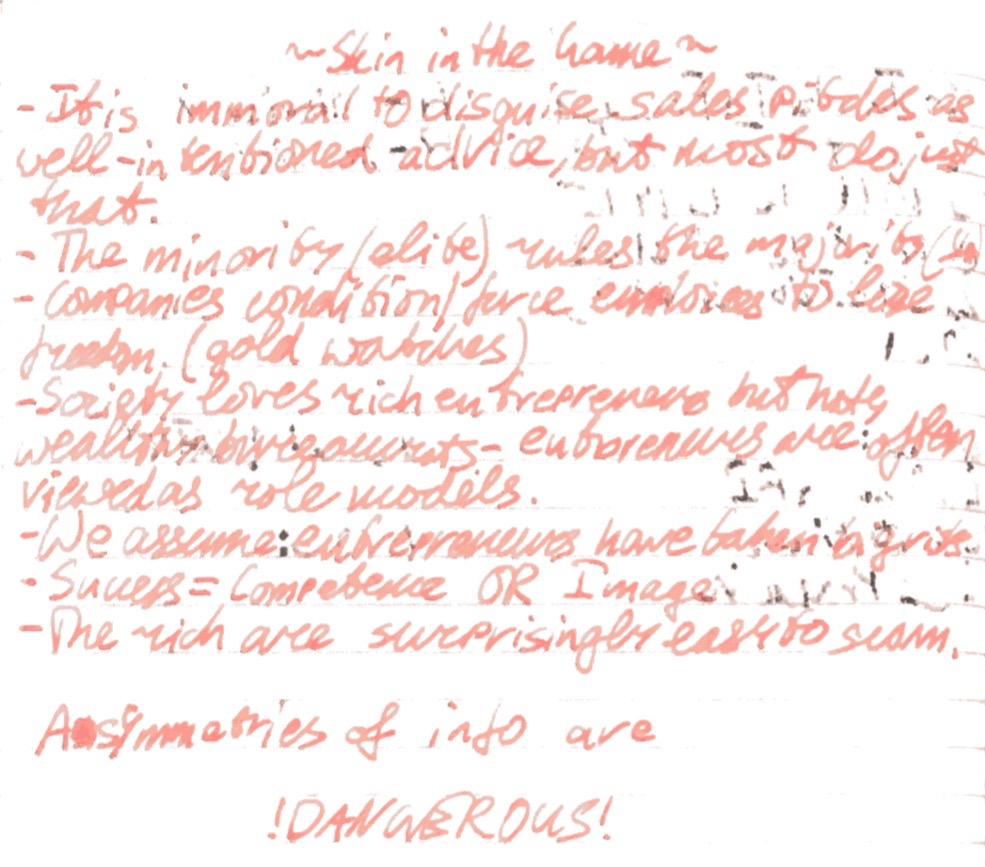 ~Skin in the Game~
- It is immoral to disguise sales pitches as
well-intentioned advice, but most do just
that.
- The minority (elite) rules the majority
- Companies condition/force employees to lose
freedom. (gold watches)
- Society loves rich entrepreneurs but hates
wealthy bureaucrats - entrepreneurs are often
viewed as role models.
- We assume entrepreneurs have taken big risks.
- Success = Competence OR Image
- The rich are surprisingly easy to scam.
Assymmetries of info are
!DANGEROUS!